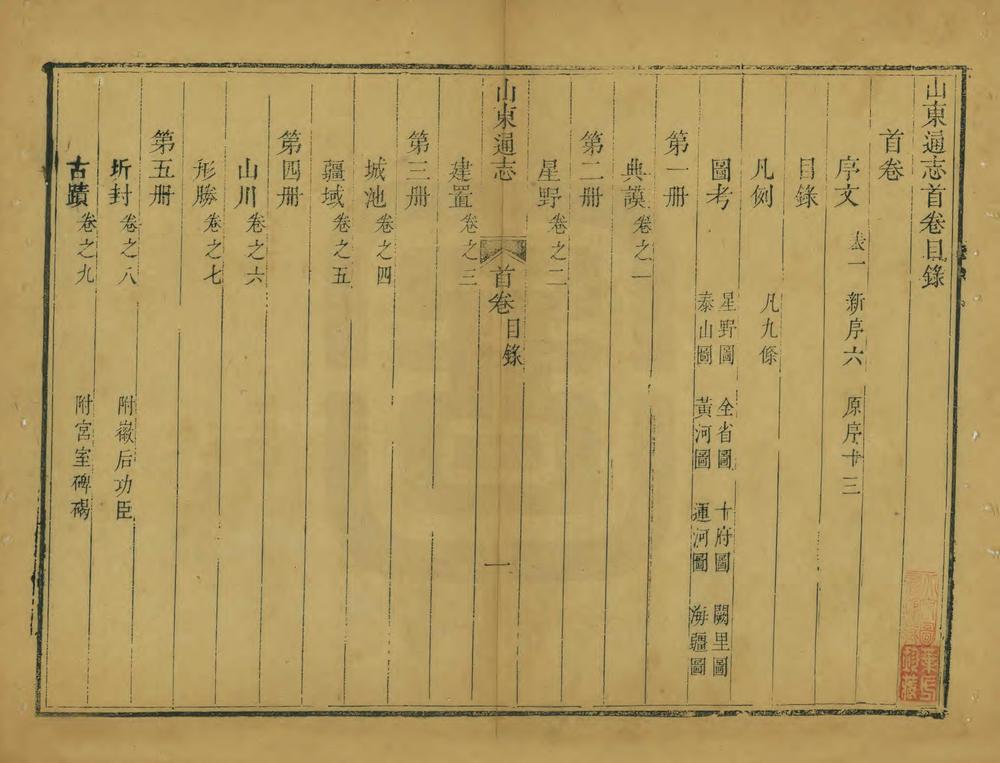 山東通志首卷目錄
首卷
序文 表一 新序六 原序十三
目錄
凡例 凡九條
圖考 星野圖 全省圖 十府圖 闕里圖
泰山圖 黃河圖 運河圖 海疆圖
第一册
典謨卷之一
第二册
星野卷之二
山東通志 首卷 目錄 一
建置卷之三
第三册
城池卷之四
疆域卷之五
第四册
山川卷之六
形勝卷之七
第五册
圻封卷之八 附徽后功臣
古蹟卷之九 附宮室碑碣